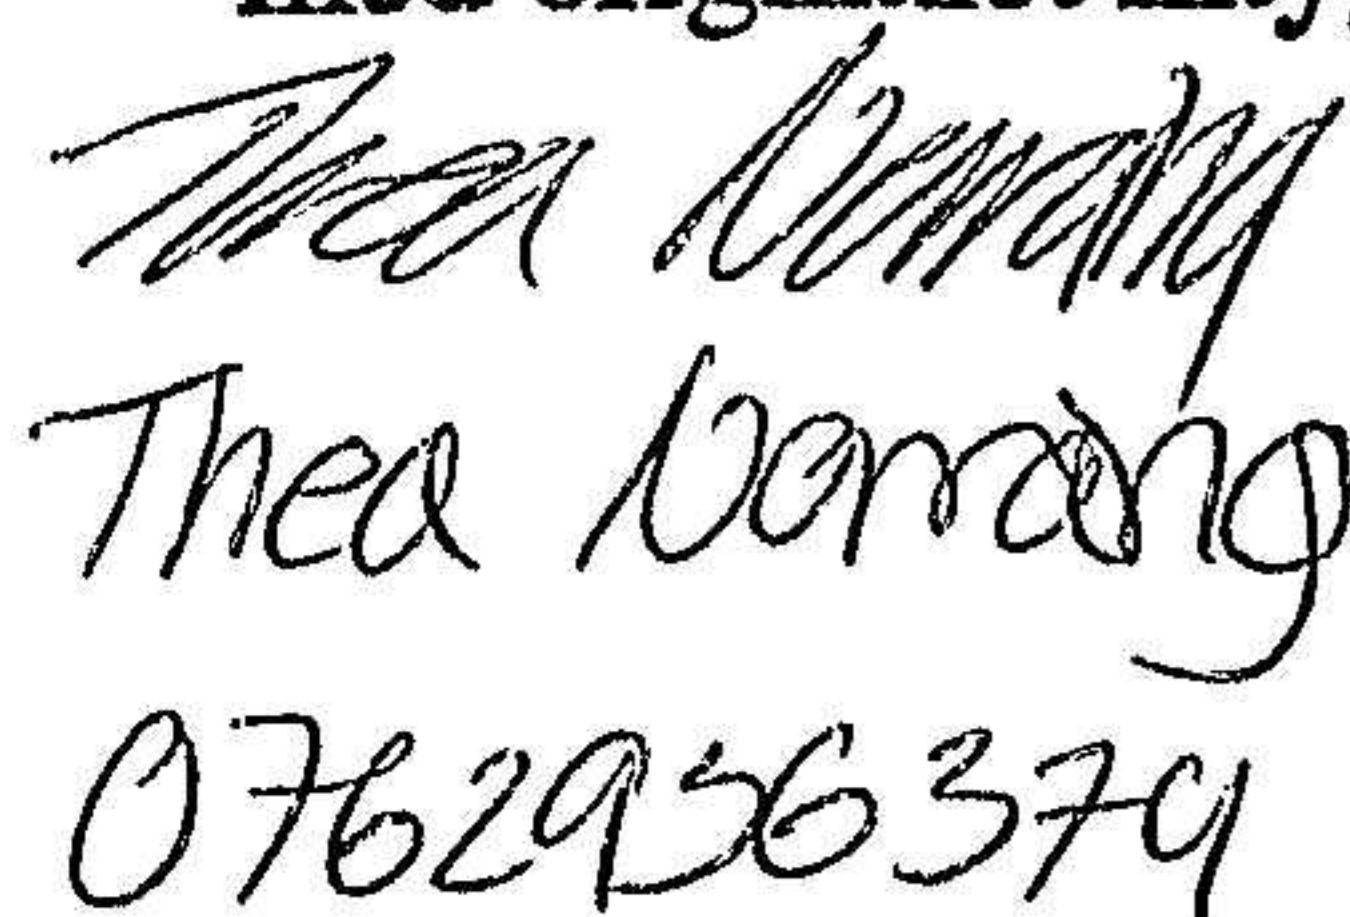 Thea Norrång
Thea Norrång
0762956379